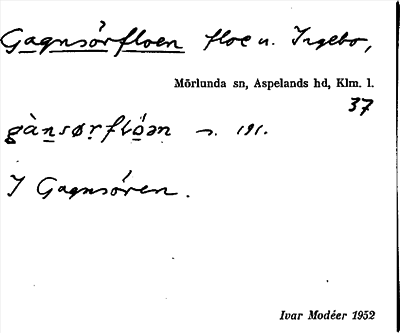 Gagnsörfloen floe u. Ingebo,
Mörlunda sn, Aspelands hd, Klm. l.
37
gànsøṛflóən n. 191.
I Gagnsören.
Ivar Modéer 1952